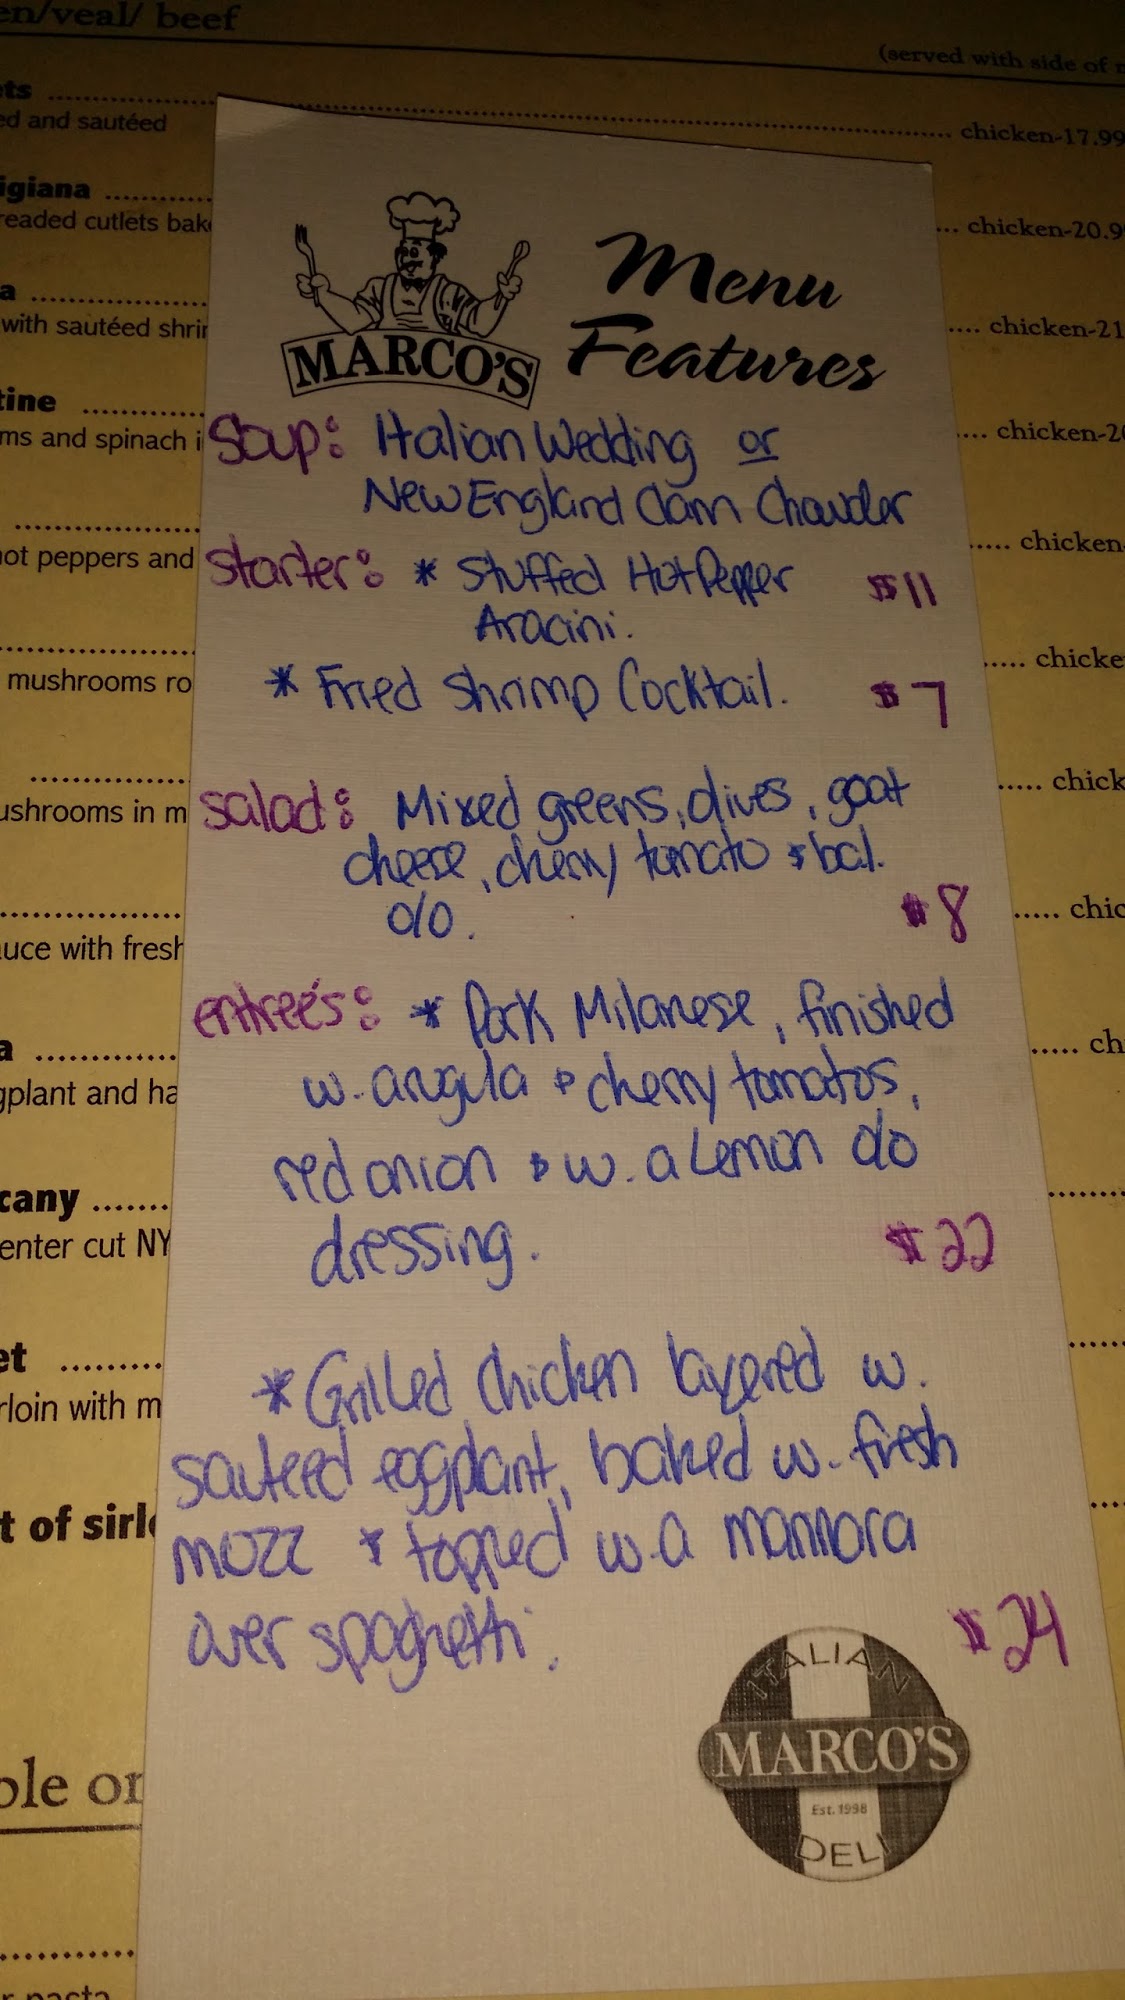 en/veal/ beef
(served with side of
ets
ed and sautéed
chicken-17.99
igiana
readed cutlets bak
chicken-20.9
a
with sautéed shri
chicken-21
tine
ms and spinach i
chicken-2
ot peppers and
chicken
mushrooms ro
chicke
ushrooms in m
chick
auce with fresh
chic
a
gplant and ha
ch
cany
enter cut NY
et
rloin with m
t of sirl
ole or
r pasta
MARCO'S
Menu
Features
Soup: Italian Wedding or
New England Clam Chowder
Starter: * Stuffed Hot Pepper $11
Aracini.
* Fried Shrimp Cocktail. $7
Salad: Mixed greens, olives, goat
cheese, cherry tomato & bal.
o/o. $8
entree's: * Pork Milanese, finished
w. arugula & cherry tomatos,
red onion & w. a Lemon o/o
dressing. $22
* Grilled Chicken layered w.
sauteed eggplant, baked w. fresh
mozz & topped w. a marinara
over spaghetti. $24
ITALIAN
MARCO'S
Est. 1998
DELI